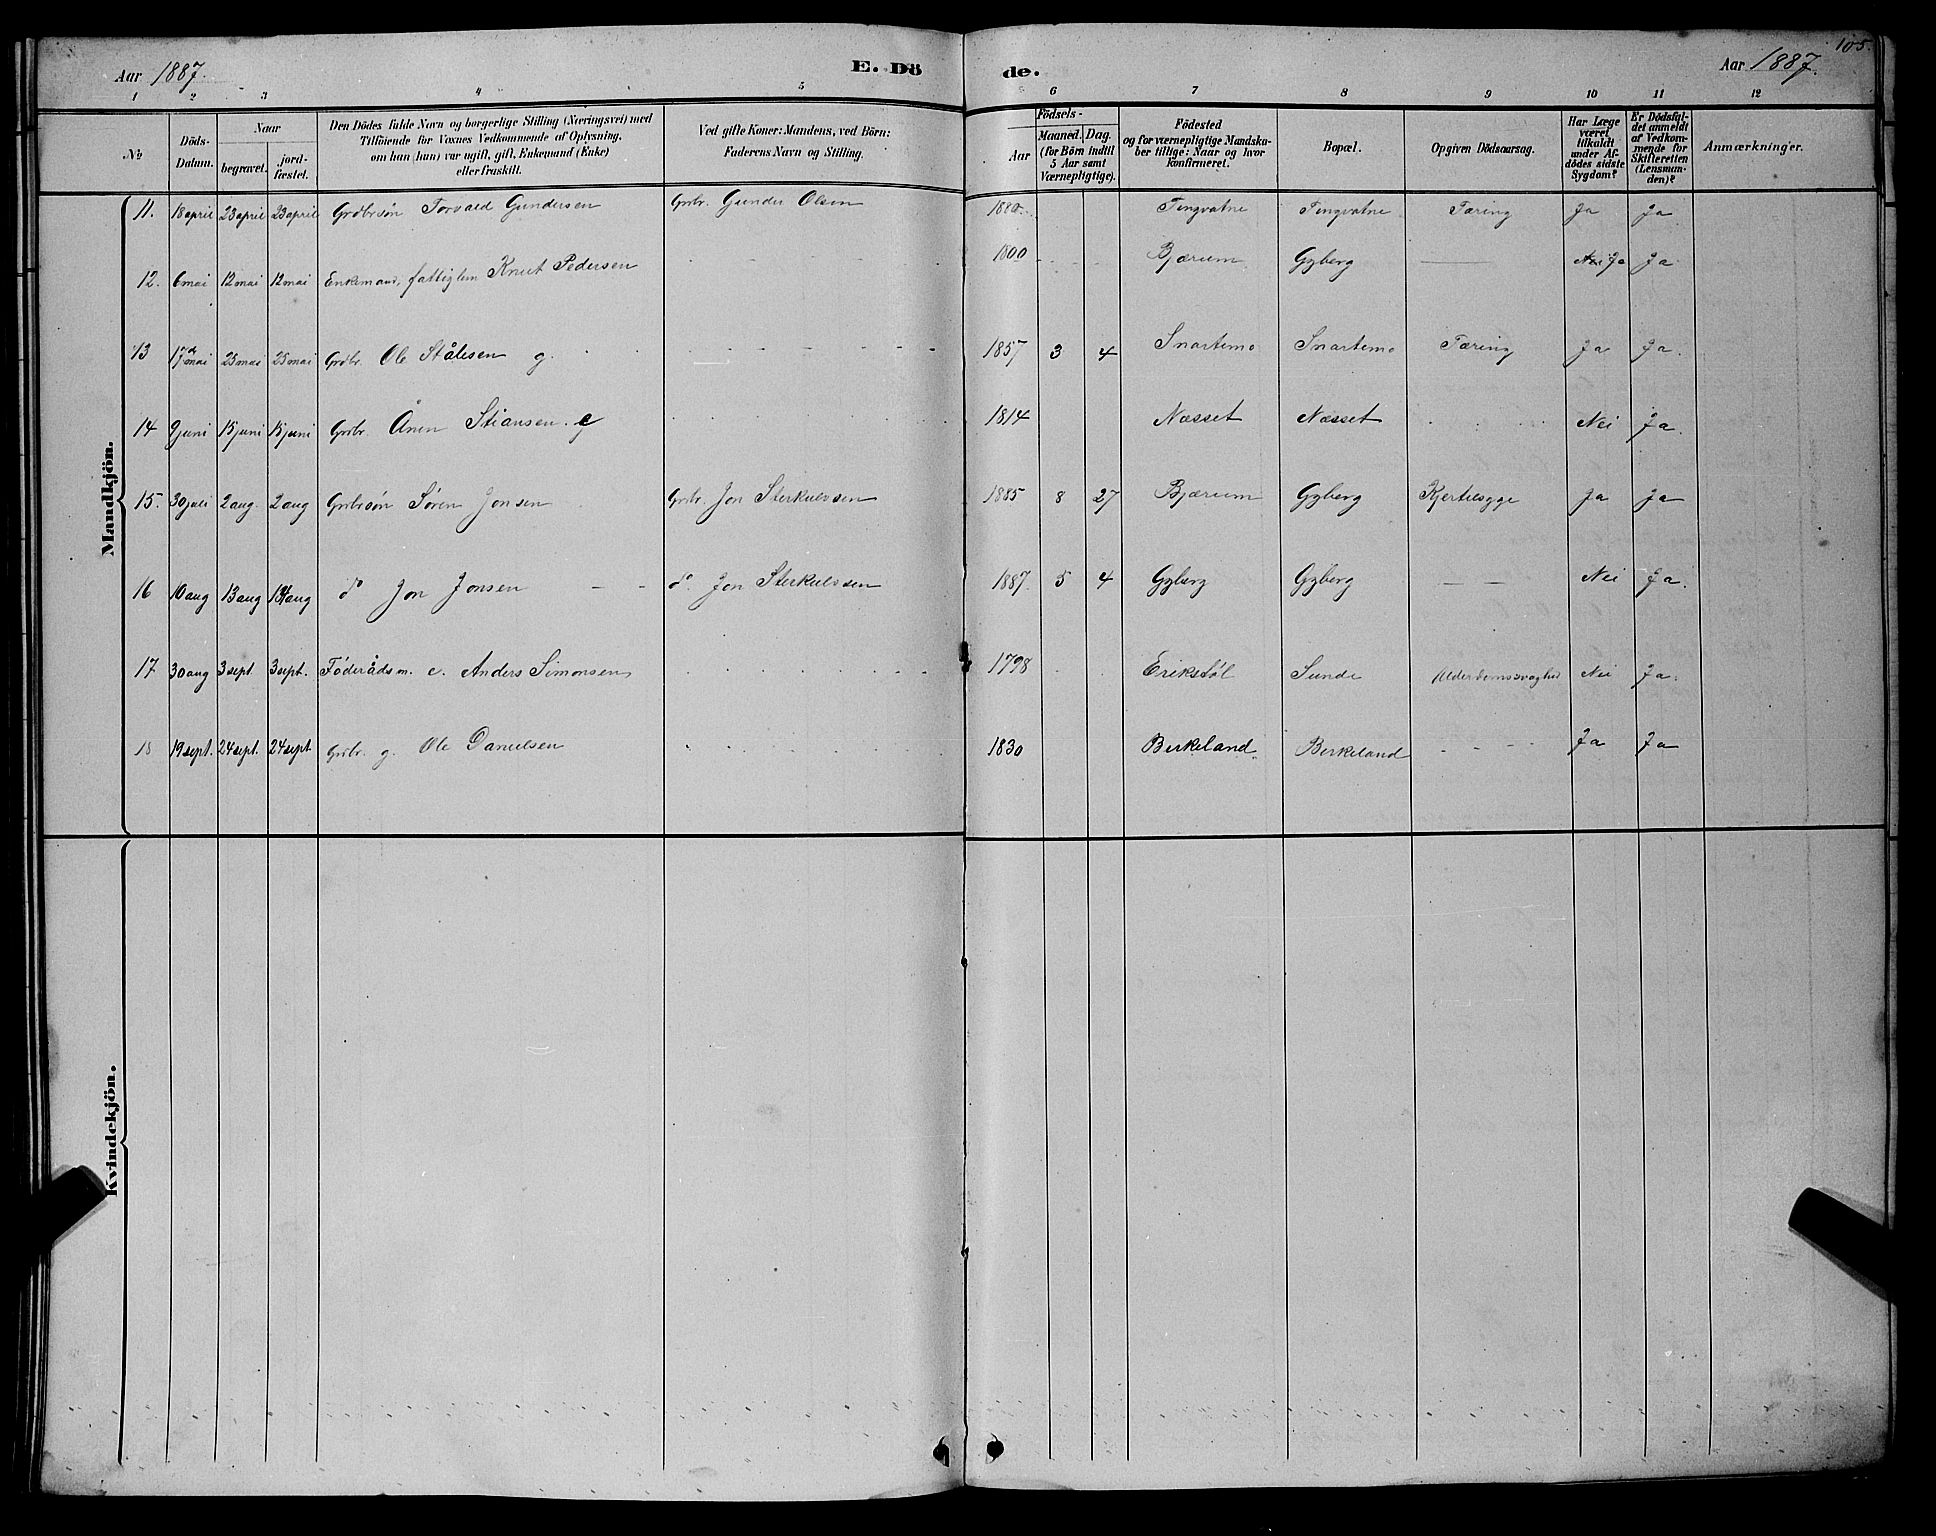 Aar 1887.
E. Dö de.
Aar 1887.
105.
1 2 3 4 5 6 7 8 9 10 11 12
No
Döds-Datum.
Naar
begravet.
jord-fæstet.
Den Dödes fulde Navn og borgerlige Stilling (Næringsvei) med
Tilföiende for Voxnes Vedkommende af Oplysning,
om han (hun) var ugift, gift, Enkemand (Enke)
eller fraskilt.
Ved gifte Koner: Mandens, ved Börn:
Faderens Navn og Stilling.
Födsels-
Aar
Maaned. Dag.
(for Börn indtil
5 Aar samt
Værnepligtige).
Födested
og for værnepligtige Mandska-
ber tillige: Naar og hvor
konfirmeret.
Bopæl.
Opgiven Dödsaarsag.
Har Læge
været
tilkaldt
under Af-
dödes sidste
Sygdom?
Er Dödsfal-
det anmeldt
af Vedkom-
mende for
Skifteretten
(Lensman-
den)?
Anmærkninger.
Mandkjön.
11. 18 april 23 april 23 april Grdbrsøn Torvald Gundersen Grbr. Gunder Olsen 1880 Tingvatne Tingvatne Tæring Ja Ja
12. 6 mai 12 mai 12 mai Enkemand, fattiglem Knut Pedersen 1800 Bjærum Gyberg Nei Ja Ja
13 17de mai 25 mai 25 mai Grdbr. Ole Stålesen g. 1857 3 4 Snartemo Snartemo Tæring Ja Ja.
14 9 juni 15 juni 15 juni Grdbr. Ånen Stiansen. 1814 Næsset Næsset Nei Ja.
15. 30 juli 2 aug. 2 aug Grbrsøn Søren Jonsen Grbr. Jon Sterkulvsen 1885 8 27 Bjærum Gyberg Kjertelsyge Ja Ja
16 10 aug 13 aug 13 aug do Jon Jonsen do. Jon Sterkulvsen 1887. 5 4 Gyberg Gyberg Nei Ja.
17 30 aug 3 sept 3 sept. Föderådsm. e. Anders Simonsen 1798 Erikstøl Sunde Alderdomssvaghed Nei Ja.
18 19 sept. 24 sept. 24 sept. Grbr. g. Ole Danielsen 1830 Birkeland Birkeland Ja Ja
Kvindekjön.